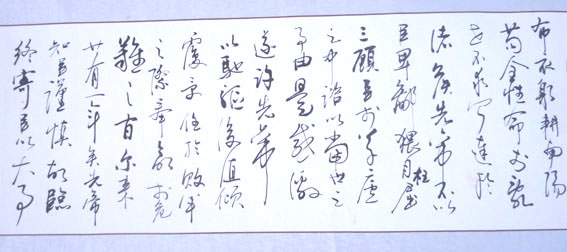 布衣躬耕南陽
苟全性命於亂
世不求聞達於
諸侯先帝不以
臣卑鄙猥自枉屈
三顧臣於草廬
之中諮以當世之
事由是感激
遂許先帝
以馳驅後值傾
覆受任於敗軍
之際奉命於危
難之間尔来
廿有一年矣先帝
知臣謹慎故臨
終寄臣以大事